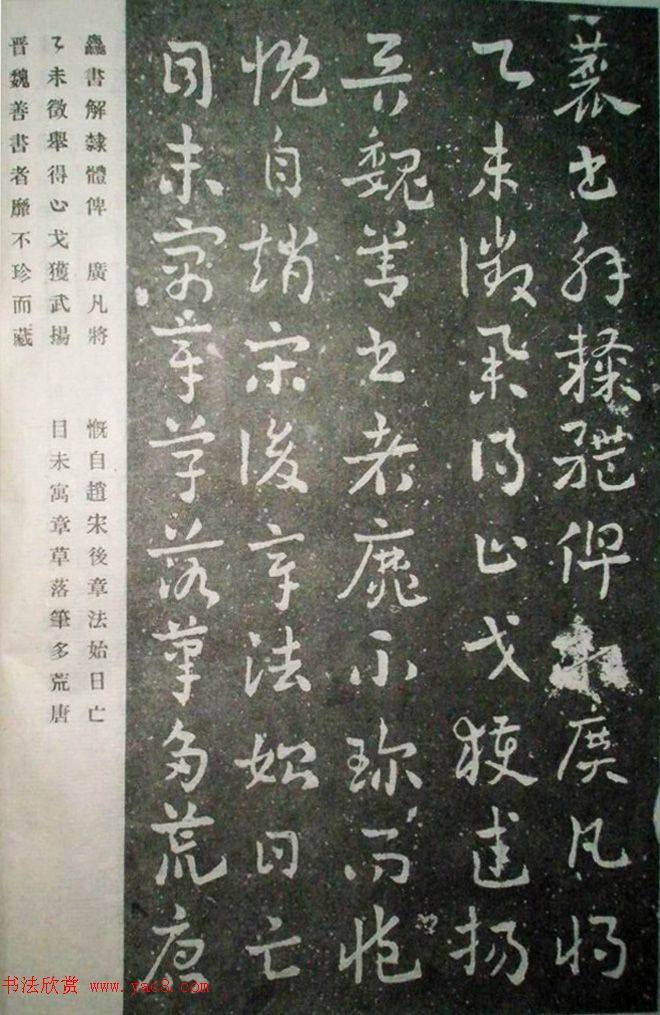 蟲書解隸體俾廣凡將
乙未徵舉得止戈獲武揚
晋魏善書者靡不珍而藏
慨自趙宋後章法始日亡
目未寓章草落筆多荒唐
蟲書解隸體俾 廣凡將
乙未徵舉得止戈獲武揚
晋魏善書者靡不珍而藏
慨自趙宋後章法始日亡
目未寓章草落筆多荒唐
书法欣赏 www.yac8.com